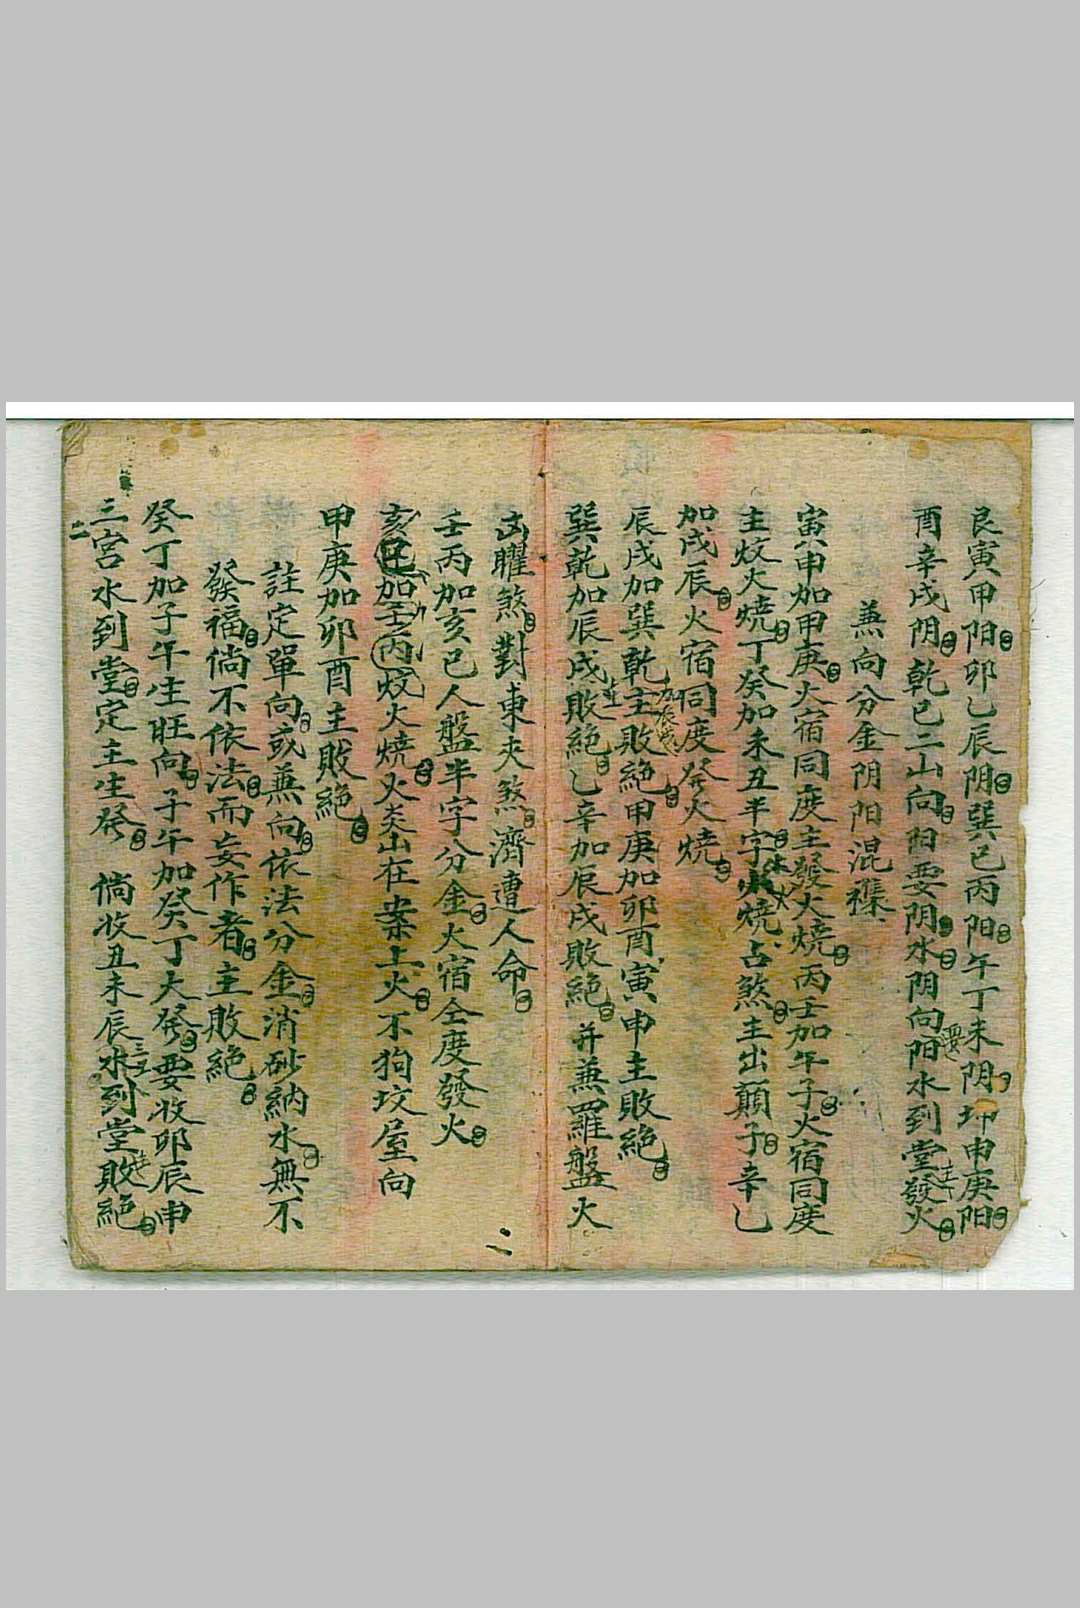 艮寅甲阳卯乙辰阴巽巳丙阳午丁未阴坤申庚阳
酉辛戌阴乾巳二山向阳要阴水阴向阳水到堂發火
兼向分金阴阳混襍
寅申加甲庚火宿同度主發火燒丙壬加午子火宿同度
主炆火燒丁癸加未丑半字火燒占煞主出顛子辛乙
加戌辰火宿同度癸火燒
辰戌加巽乾主敗絕甲庚加卯酉寅申主敗絕
巽乾加辰戌敗絕乙辛加辰戌敗絕并兼羅盤火
凶曜煞對東夾煞濟遭人命
壬丙加亥巳人盤半字分金火宿仝度發火
亥巳加壬丙炆火燒又炎山在案上火不狗坟屋向
甲庚加卯酉主敗絕
註定單向或兼向依法分金消砂納水無不
發福倘不依法而妄作者主敗絕
癸丁加子午生旺向子午加癸丁大發要收卯辰申
三宮水到堂定主生發 倘收丑未辰水到堂敗絕
二